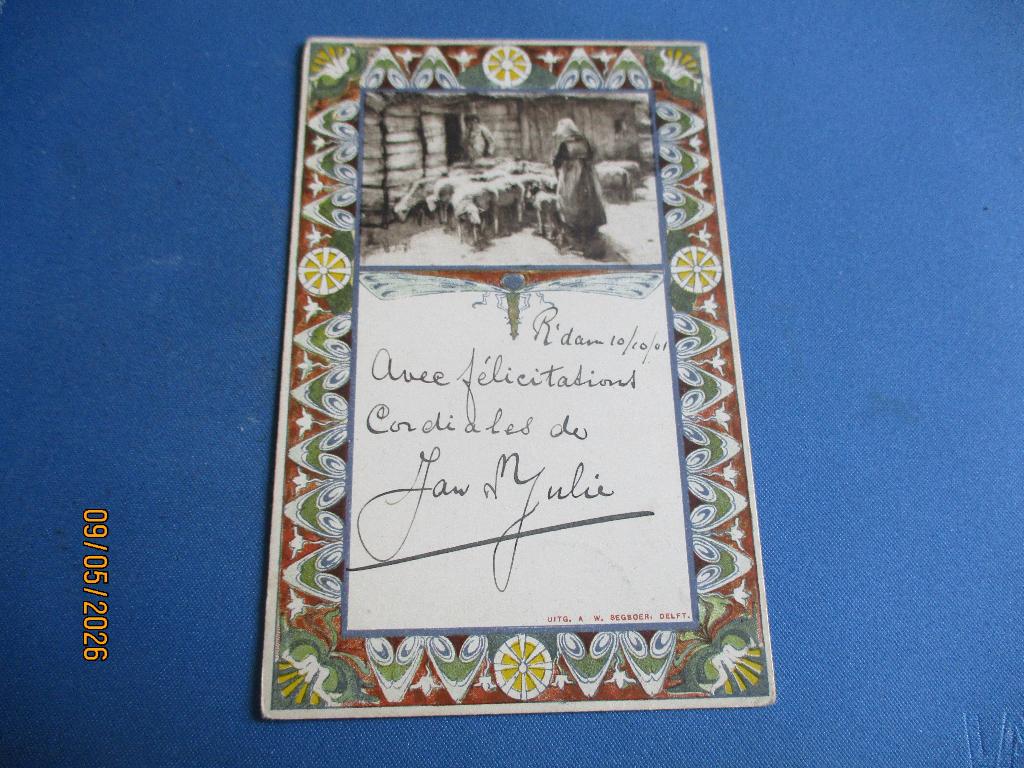 R'dam 10/10/01
Avec félicitations
Cordiales de
Jan & Julie
UITG. A. W. SEGBOER, DELFT.
09/05/2026